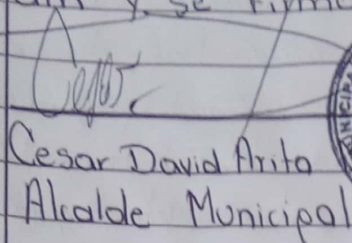 y se firma
Cesar
Cesar David Arita
Alcalde Municipal